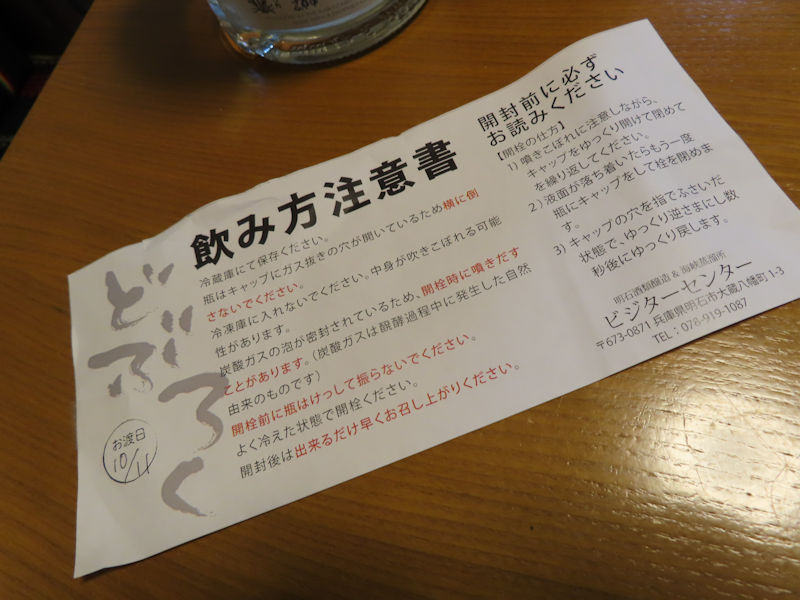 飲み方注意書
冷蔵庫にて保存ください。
瓶はキャップにガス抜きの穴が開いているため横に倒
さないでください。
冷凍庫に入れないでください。中身が吹きこぼれる可能
性があります。
炭酸ガスの泡が密封されているため、開栓時に噴きだす
ことがあります。（炭酸ガスは醗酵過程中に発生した自然
由来のものです）
開栓前に瓶はけっして振らないでください。
よく冷えた状態で開栓ください。
開封後は出来るだけ早くお召し上がりください。
どぶろく
お渡日
10/11
開封前に必ず
お読みください
【開栓の仕方】
1）噴きこぼれに注意しながら、
キャップをゆっくり開けて閉めて
を繰り返してください。
2）液面が落ち着いたらもう一度
瓶にキャップをして栓を閉めま
す。
3）キャップの穴を指でふさいだ
状態で、ゆっくり逆さまにし数
秒後にゆっくり戻します。
明石酒類醸造 & 海峡蒸溜所
ビジターセンター
〒673-0871 兵庫県明石市大蔵八幡町 1-3
TEL：078-919-1087